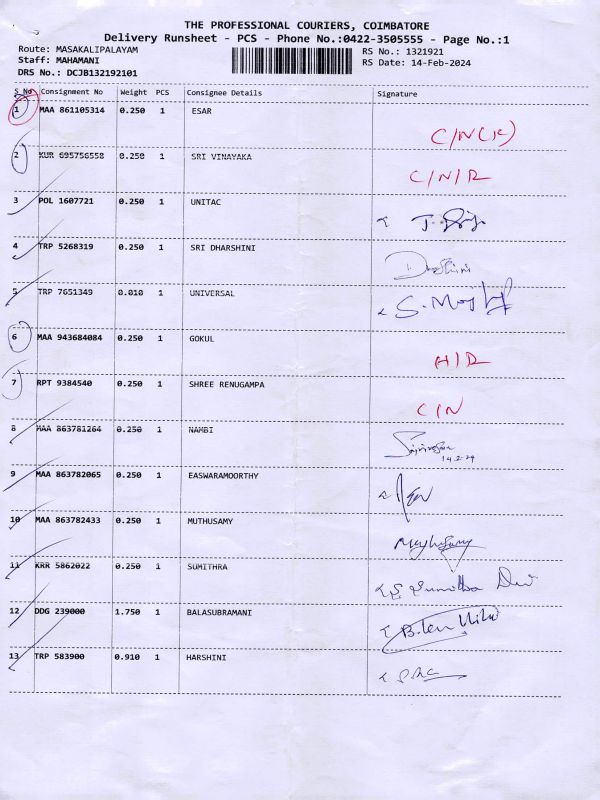 THE PROFESSIONAL COURIERS, COIMBATORE
Delivery Runsheet - PCS - Phone No.:0422-3505555 - Page No.:1
Route: MASAKALIPALAYAM RS No.: 1321921
Staff: MAHAMANI RS Date: 14-Feb-2024
DRS No.: DCJB132192101
S No Consignment No Weight PCS Consignee Details Signature
1 MAA 861105314 0.250 1 ESAR
C/N(K)
2 KUR 695756558 0.250 1 SRI VINAYAKA
C/N/R
3 POL 1607721 0.250 1 UNITAC
4 TRP 5268319 0.250 1 SRI DHARSHINI
Dharshini
5 TRP 7651349 0.010 1 UNIVERSAL
6 MAA 943684084 0.250 1 GOKUL
H/R
7 RPT 9384540 0.250 1 SHREE RENUGAMPA
C/N
8 MAA 863781264 0.250 1 NAMBI
14-2-24
9 MAA 863782065 0.250 1 EASWARAMOORTHY
10 MAA 863782433 0.250 1 MUTHUSAMY
11 KRR 5862022 0.250 1 SUMITHRA
S. Sumitha Devi
12 DDG 239000 1.750 1 BALASUBRAMANI
13 TRP 583900 0.910 1 HARSHINI